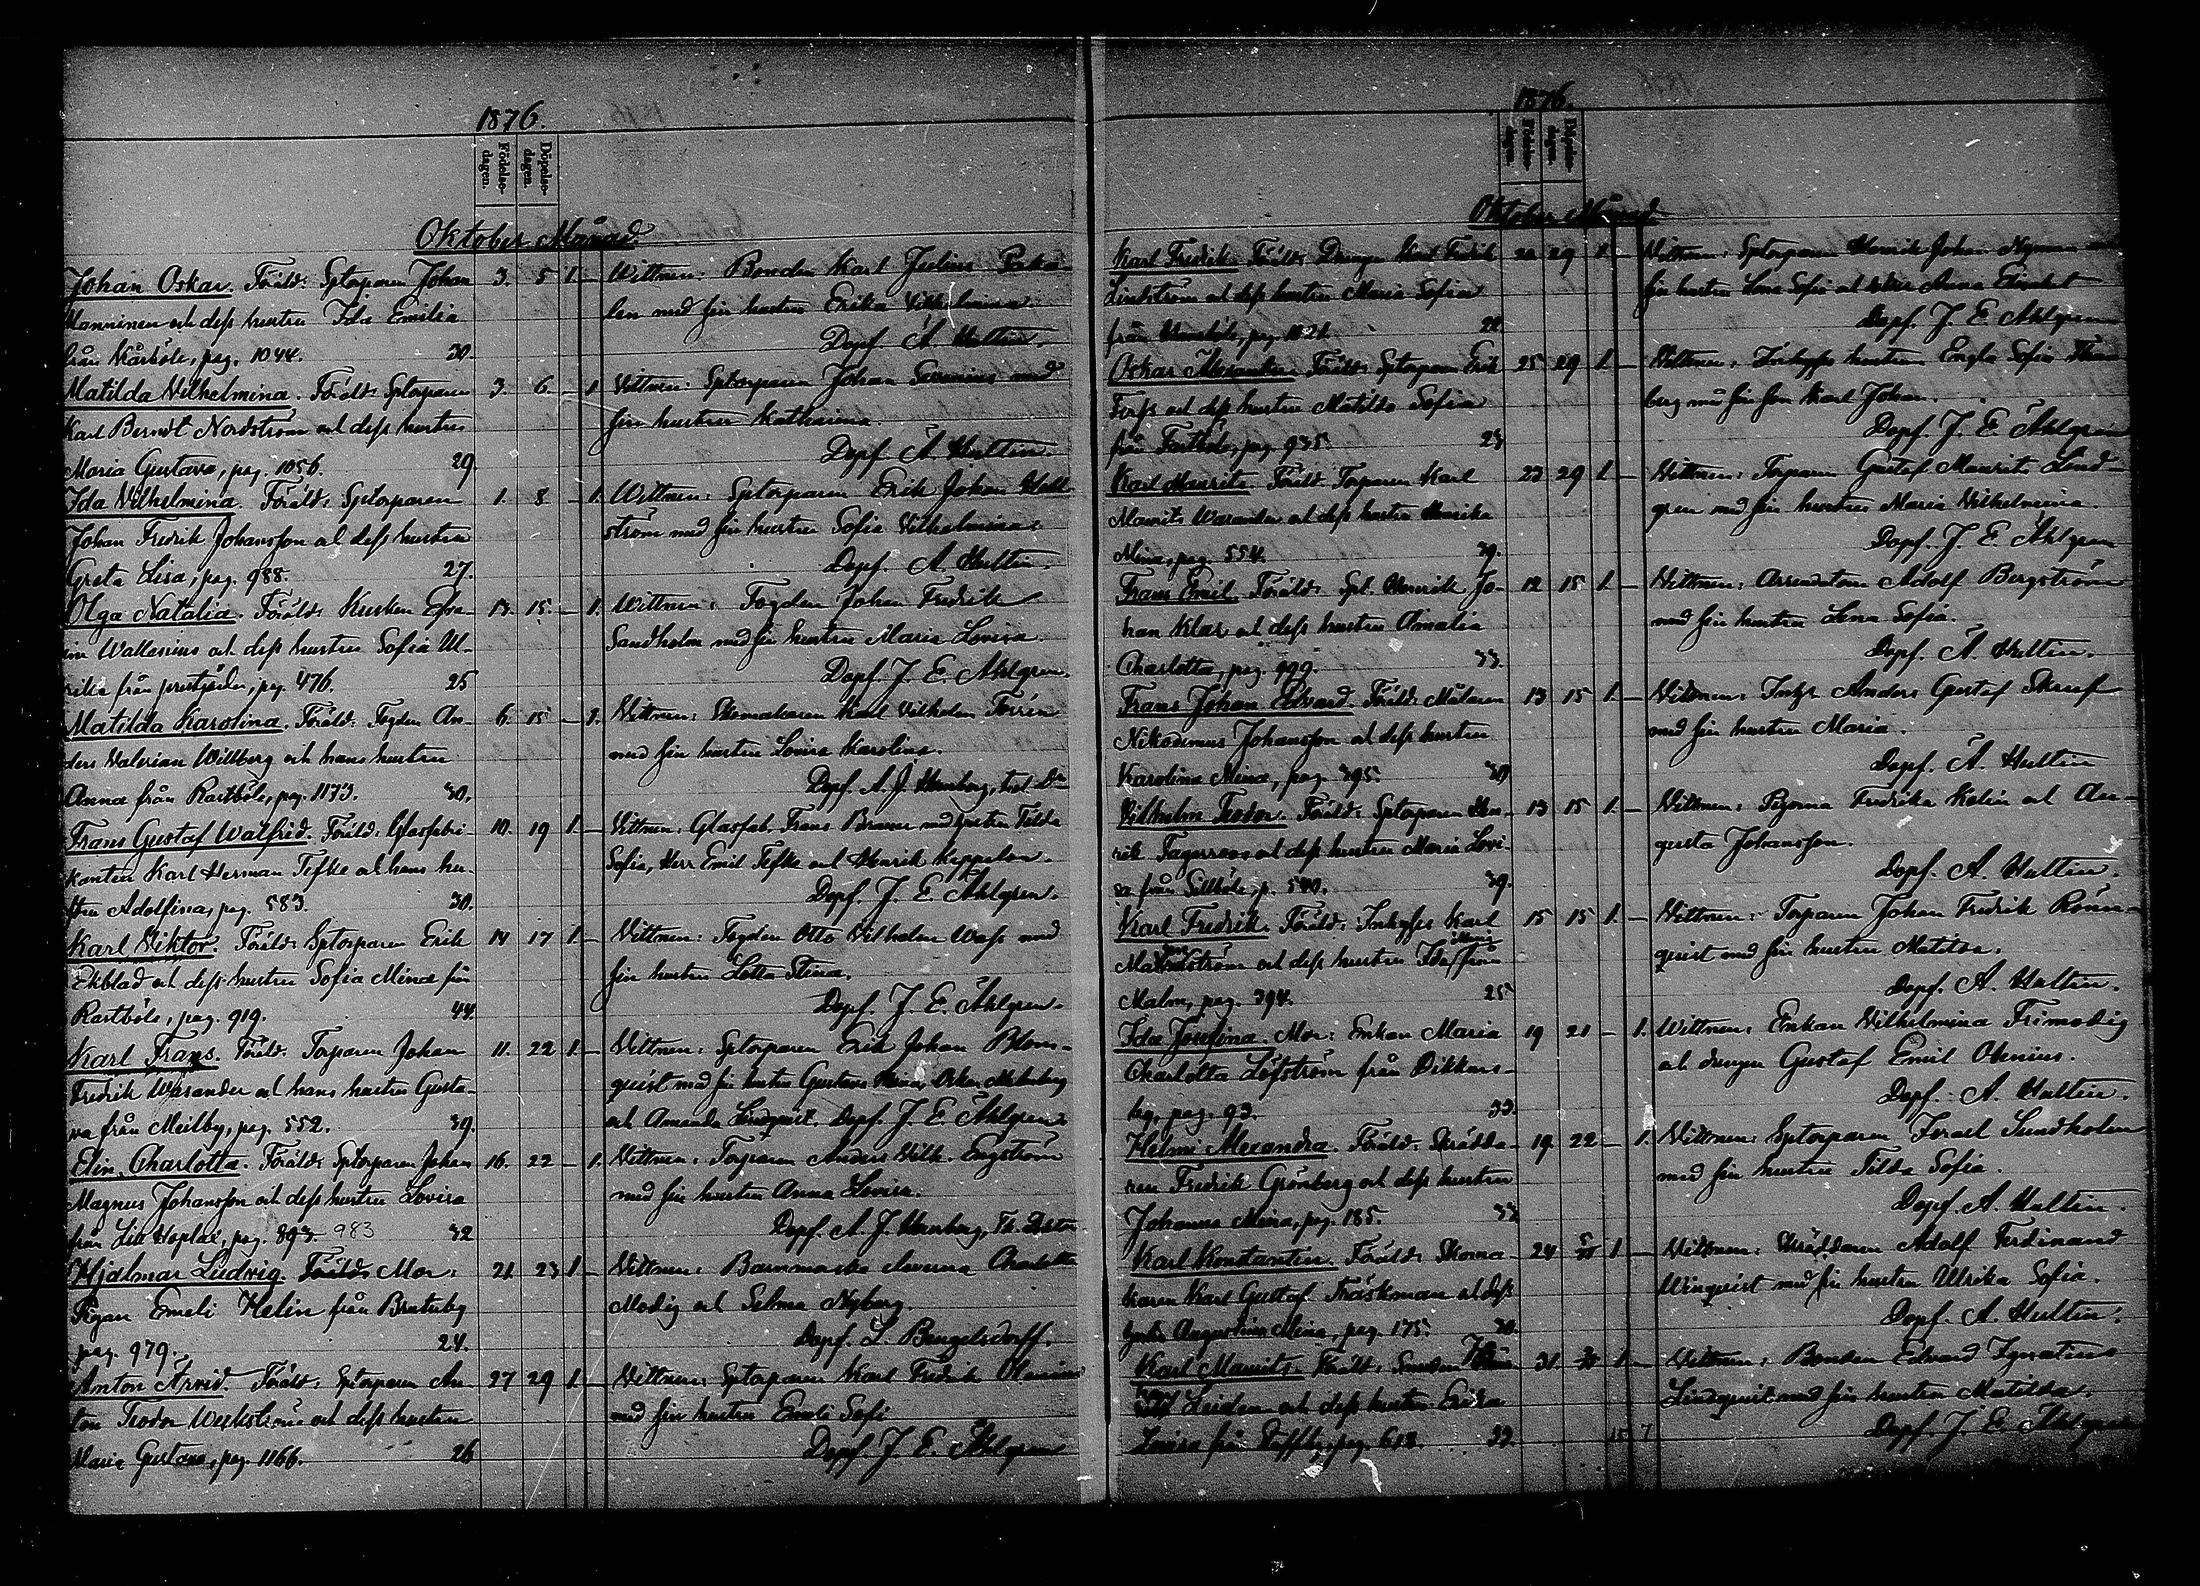 1876.
Födelse-
dagen.
Döpelse-
dagen.
Oktober Månad.
Johan Oskar. Föräld: Sptorparen Johan 3. 5 1. –
Manninen och dess hustru Ida Emilia
från Kårböle, pag. 1044. 30
Wittnen: Bonden Karl Julius
len med sin hustru Erika Vilhelmina.
Dopf. A. Hultin.
Matilda Vilhelmina. Föräld: Sptorparen 3. 6. – 1
Karl Berndt Nordström och dess hustru
Maria Gustava, pag. 1056. 29.
Vittnen: Sptorparen Johan Severinus med
sin hustru Katharina.
Dopf. A. Hultin.
Ida Vilhelmina. Föräld: Sptorparen 1. 8 – 1.
Johan Fredrik Johansson och dess hustru
Greta Lisa, pag. 988. 27.
Wittnen: Sptorparen Erik Johan Wall-
ström med sin hustru Sofia Vilhelmina.
Dopf. A. Hultin.
Olga Natalia. Föräld: Kusken Efra- 13. 15. – 1.
im Wallenius och dess hustru Sofia Ul-
rika från prestgården, pag. 476. 25
Wittnen: Fogden Johan Fredrik
Sandholm med sin hustru Maria Lovisa.
Dopf. J. E. Ahlgren.
Matilda Karolina. Föräld: Fogden An- 6. 15 – 1.
ders Valerian Willberg och hans hustru
Anna från Rastböle, pag. 1173. 30.
Vittnen: Skomakaren Karl Vilhelm Torrén
med sin hustru Lovisa Karolina.
Dopf. A. J. Hornborg,
Frans Gustaf Walfrid. Föräld: Glasfabri- 10. 19 1. –
kanten Karl Herman Tefke och hans hu-
stru Adolfina, pag. 583. 30.
Vittnen: Glasfab. Frans Bremer med hustru Tilda
Sofia, Herr Emil Tefke och Henrik Keppelon.
Dopf. J. E. Ahlgren.
Karl Viktor. Föräld: Sptorparen Erik 14 17 1. –
Ekblad och dess hustru Sofia Mina från
Rastböle, pag. 919. 44.
Vittnen: Fogden Otto Vilhelm Wass med
sin hustru Lotta Stina.
Dopf. J. E. Ahlgren.
Karl Frans. Föräld: Torparen Johan 11. 22 1. –
Fredrik Warander och hans hustru Gusta-
va från Meilby, pag. 552. 39.
Vittnen: Sptorparen Erik Johan Blom-
quist med sin hustru Gustava Mina, Oskar
och Amanda Lindquist. Dopf. J. E. Ahlgren.
Elin Charlotta. Föräld: Sptorparen Johan 16. 22 – 1.
Magnus Johansson och dess hustru Lovisa
från Lill Hoplax, pag. 893. 983 32
Vittnen: Torparen Anders Vilh. Engström
med sin hustru Anna Lovisa.
Dopf. A. J. Hornborg, Th. Doktor
Hjalmar Ludvig. Föräld: Mor: 21. 23 1. –
Pigan Emeli Helin från Britasby
pag. 979. 24.
Vittnen: Barnmorska Charlotta
Modig och Selma Nyberg.
Dopf. L. Bengelsdorff.
Anton Arvid. Föräld: Sptorparen An- 27 29 1. –
ton Teodor Weckström och dess hustru
Maria Gustava, pag. 1166. 26
Vittnen: Sptorparen Karl Fredrik Olenius
med sin hustru Emeli Sofi
Dopf. J. E. Ahlgren
1876.
Födelse-
dagen.
Döpelse-
dagen.
Oktober Månad
Karl Fredrik. Föräld: Drengen Karl Fredrik 22 29 1. –
Lindström och dess hustru Maria Sofia
pag. 1021. 22
Vittnen: Sptorparen Henrik Johan Nyman med
sin hustru Lena Sofia och Anna Elisabet
Dopf. J. E. Ahlgren
Oskar Alexander. Föräld: Sptorparen Erik 25 29 1. –
Forss och dess hustru Matilda Sofia
från Fastböle, pag. 935. 23
Vittnen: Inhyses hustrun Engla Sofia
berg med sin son Karl Johan.
Dopf. J. E. Ahlgren
Karl Maurits. Föräld: Torparen Karl 23 29 1. –
Maurits Warander och dess hustru Henrika
Mina, pag. 554. 39.
Vittnen: Torparen Gustaf Maurits Lind-
gren med sin hustru Maria Vilhelmina.
Dopf. J. E. Ahlgren
Frans Emil. Föräld: Spt. Henrik Jo- 12 15 1. –
han Klar och dess hustru Amalia
Charlotta, pag. 999. 33.
Vittnen: Arrendatorn Adolf Bergström
med sin hustru Lena Sofia.
Dopf. A. Hultin.
Frans Johan Edvard. Föräld: Målaren 13 15 1. –
Nikodemus Johansson och dess hustru
Karolina Mina, pag. 395. 30
Vittnen: Inhys. Anders Gustaf Skruf
med sin hustru Maria.
Dopf. A. Hultin
Vilhelm Teodor. Föräld: Sptorparen Hen- 13 15 1. –
rik Fagerroos och dess hustru Maria Lovi-
sa från Sillböle, p. 540. 39.
Vittnen: Pigorna Fredrika Kolin och Au-
gusta Johansson.
Dopf. A. Hultin.
Karl Fredrik. Föräld: Inhyses Karl 15 15 1. –
Malmström och dess hustru Ida Maria från
Malm, pag. 394. 25
Vittnen: Torparen Johan Fredrik Rönn-
quist med sin hustru Matilda.
Dopf. A. Hultin.
Ida Josefina. Mor: Enkan Maria 19 21 – 1.
Charlotta Löfström från Dikkurs-
by, pag. 93. 33.
Wittnen: Enkan Vilhelmina Frimodig
och drengen Gustaf Emil Olenius.
Dopf. A. Hultin.
Helmi Alexandra. Föräld: Skrädda- 19. 22 – 1.
ren Fredrik Grönberg och dess hustru
Johanna Mina, pag. 185. 33
Vittnen: Sptorparen Israel Sundholm
med sin hustru Tilda Sofia.
Dopf. A. Hultin.
Karl Konstantin. Föräld: Skoma- 24 1. –
karen Karl Gustaf Träskman och dess
hustru Augustina Mina, pag. 175. 30.
Vittnen: Skräddaren Adolf Ferdinand
Winquist med sin hustru Ulrika Sofia.
Dopf. A. Hultin.
Karl Maurits. Föräld: Smeden 31. 1. –
Leidén och dess hustru Erika
Lovisa från pag. 618. 33.
Vittnen: Bonden Edvard Ignatius
Lindquist med sin hustru Matilda.
Dopf. J. E. Ahlgren
15 7